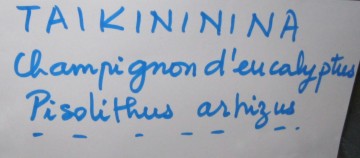 TAIKINININA
Champignon d'eucalyptus
Pisolithus arhizus